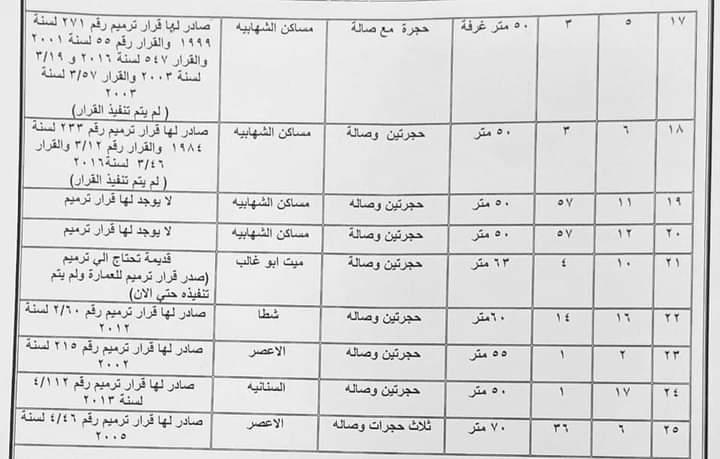 ١٧ ٥ ٣ ٥٠ متر غرفة حجرة مع صالة مساكن الشهابيه صادر لها قرار ترميم رقم ٢٧١ لسنة
١٩٩٩ والقرار رقم ٥٥ لسنة ٢٠٠١
والقرار ٥٤٧ لسنة ٢٠١٦ و ٣/١٩
لسنة ٢٠٠٣ والقرار ٣/٥٧ لسنة
٢٠٠٣
( لم يتم تنفيذ القرار)
١٨ ٦ ٣ ٥٠ متر حجرتين وصالة مساكن الشهابيه صادر لها قرار ترميم رقم ٢٣٣ لسنة
١٩٨٤ والقرار رقم ٣/١٢ والقرار
٣/٤٦ لسنة٢٠١٦
( لم يتم تنفيذ القرار)
١٩ ١١ ٥٧ ٥٠ متر حجرتين وصاله مساكن الشهابيه لا يوجد لها قرار ترميم
٢٠ ١٢ ٥٧ ٥٠ متر حجرتين وصاله مساكن الشهابيه لا يوجد لها قرار ترميم
٢١ ١٠ ٤ ٦٣ متر حجرتين وصالة ميت ابو غالب قديمة تحتاج الي ترميم
(صدر قرار ترميم للعمارة ولم يتم
تنفيذه حتي الان)
٢٢ ١٦ ١٤ ٦٠متر حجرتين وصاله شطا صادر لها قرار ترميم رقم ٢/٦٠ لسنة
٢٠١٢
٢٣ ٢ ١ ٥٥ متر حجرتين وصاله الاعصر صادر لها قرار ترميم رقم ٢١٥ لسنة
٢٠٠٢
٢٤ ١٧ ١ ٥٠ متر حجرتين وصاله السنانيه صادر لها قرار ترميم رقم ٤/١١٢
لسنة ٢٠١٣
٢٥ ٦ ٣٦ ٧٠ متر ثلاث حجرات وصاله الاعصر صادر لها قرار ترميم رقم ٤/٤٦ لسنة
٢٠٠٥